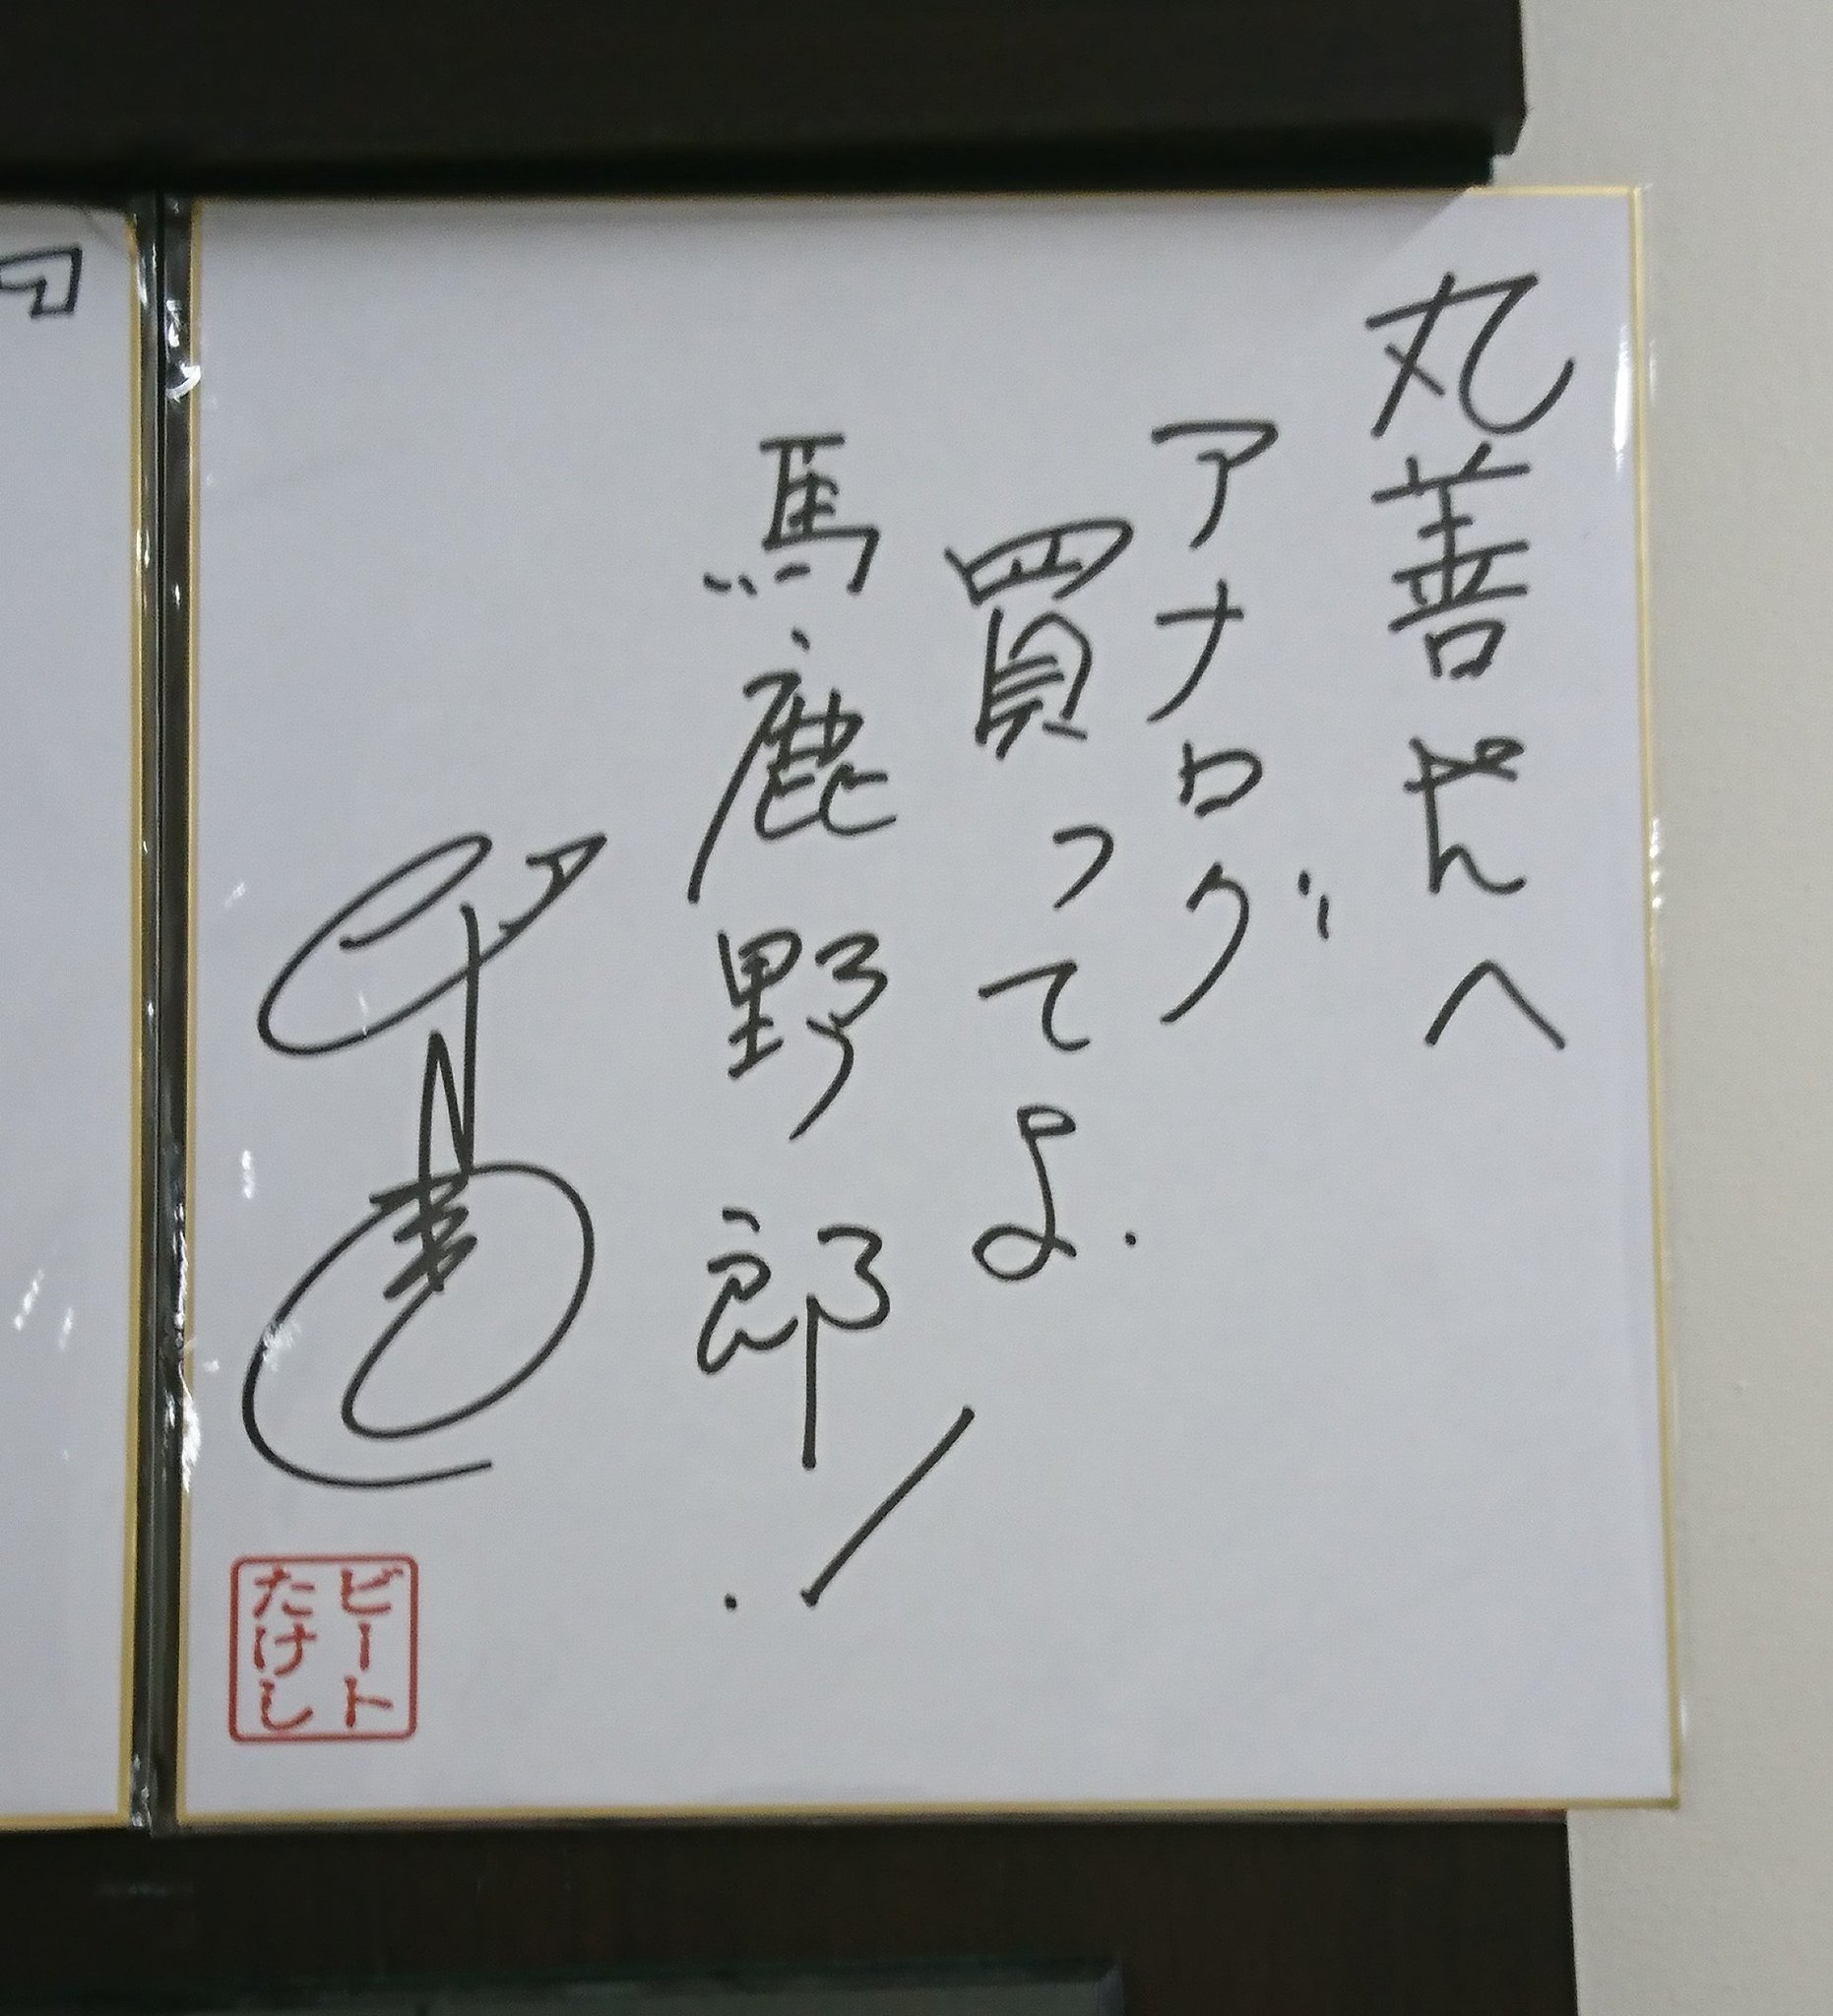 丸善さんへ
アナログ
買ってよ.
馬鹿野郎!
ビート
たけし